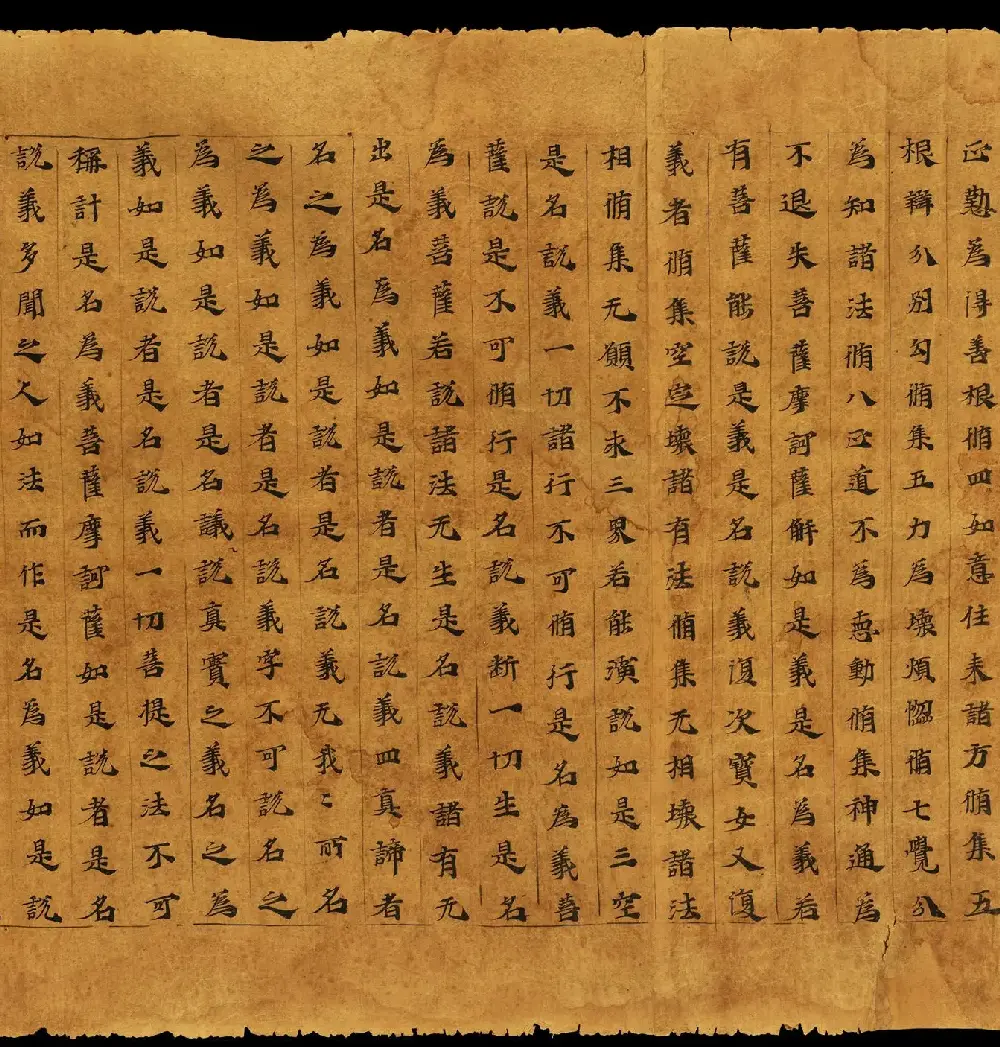 正懃為得善根脩四如意住未諸方脩集五
根辯分別勾脩集五力為壞煩惱脩七覺分
為知諸法脩八正道不為惡動脩集神通為
不退失菩薩摩訶薩解如是義是名為義若
有菩薩能説是義是名説義復次寳女又復
義者脩集空㝎壞諸有法脩集无相壞諸法
相脩集无願不求三界若能演説如是三空
是名説義一切諸行不可脩行是名為義菩
薩説是不可脩行是名説義断一切生是名
為義菩薩若説諸法无生是名説義諸有无
出是名為義如是説者是名説義四真諦者
名之為義如是説者是名説義无我〻所名
之為義如是説者是名説義字不可説名之
為義如是説者是名議説真實之義名之為
義如是説者是名説義一切菩提之法不可
稱計是名為義菩薩摩訶薩如是説者是名
説義多聞之人如法而作是名為義如是説